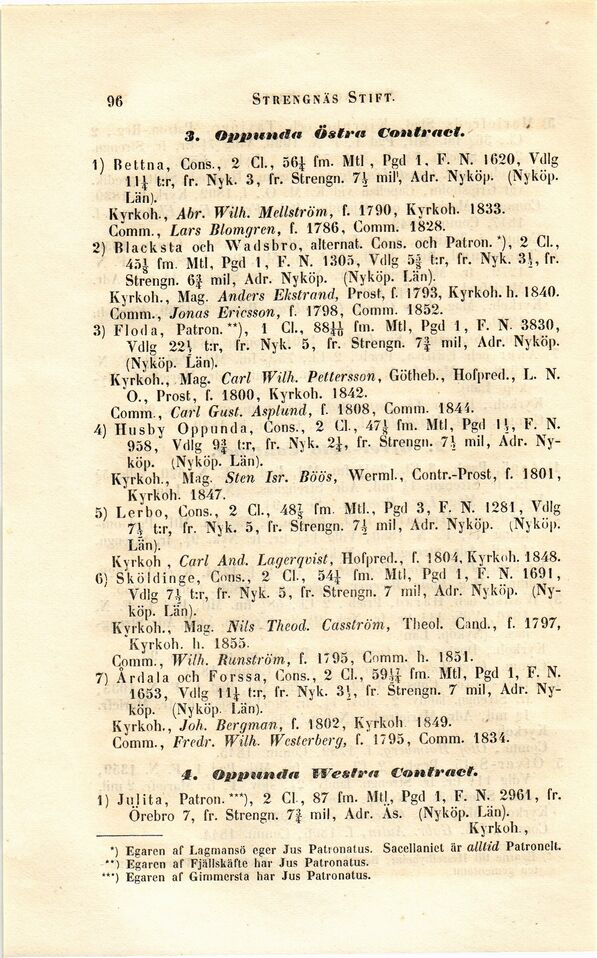 96 STRENGNÄS STIFT.
3. Oppunda Östra Contract.
1) Bettna, Cons., 2 Cl., 56¼ fm. Mtl, Pgd 1, F. N. 1620, Vdlg
11¼ t:r, fr. Nyk. 3, fr. Strengn. 7½ mil, Adr. Nyköp. (Nyköp.
Län).
Kyrkoh., Abr. Wilh. Mellström, f. 1790, Kyrkoh. 1833.
Comm., Lars Blomgren, f. 1786, Comm. 1828.
2) Blacksta och Wadsbro, alternat. Cons. och Patron.*), 2 Cl.,
45⅛ fm. Mtl, Pgd 1, F. N. 1305, Vdlg 5⅝ t:r, fr. Nyk. 3½, fr.
Strengn. 6¾ mil, Adr. Nyköp. (Nyköp. Län).
Kyrkoh., Mag. Anders Ekstrand, Prost, f. 1793, Kyrkoh. h. 1840.
Comm., Jonas Ericsson, f. 1798, Comm. 1852.
3) Floda, Patron.**), 1 Cl., fm. Mtl, Pgd 1, F. N. 3830,
Vdlg 22½ t:r, fr. Nyk. 5, fr. Strengn. 7¾ mil, Adr. Nyköp.
(Nyköp. Län).
Kyrkoh., Mag. Carl Wilh. Pettersson, Götheb., Hofpred., L. N.
O., Prost, f. 1800, Kyrkoh. 1842.
Comm., Carl Gust. Asplund, f. 1808, Comm. 1844.
4) Husby Oppunda, Cons., 2 Cl., 47¼ fm. Mtl, Pgd 1½, F. N.
958, Vdlg 9¾ t:r, fr. Nyk. 2¼, fr. Strengn. 7½ mil, Adr. Ny-
köp. (Nyköp. Län).
Kyrkoh., Mag. Sten Isr. Böös, Werml., Contr.-Prost, f. 1801,
Kyrkoh. 1847.
5) Lerbo, Cons., 2 Cl., 48⅞ fm. Mtl., Pgd 3, F. N. 1281, Vdlg
7½ t:r, fr. Nyk. 5, fr. Strengn. 7½ mil, Adr. Nyköp. (Nyköp.
Län).
Kyrkoh , Carl And. Lagerqvist, Hofpred., f. 1804, Kyrkoh. 1848.
6) Sköldinge, Cons., 2 Cl., 54¼ fm. Mtl, Pgd 1, F. N. 1691,
Vdlg 7½ t:r, fr. Nyk. 5, fr. Strengn. 7 mil, Adr. Nyköp. (Ny-
köp. Län).
Kyrkoh., Mag. Nils Theod. Casström, Theol. Cand., f. 1797,
Kyrkoh. h. 1855.
Comm., Wilh. Runström, f. 1795, Comm. h. 1851.
7) Årdala och Forssa, Cons., 2 Cl., fm. Mtl, Pgd 1, F. N.
1653, Vdlg 11¼ t:r, fr. Nyk. 3½, fr. Strengn. 7 mil, Adr. Ny-
köp. (Nyköp. Län).
Kyrkoh., Joh. Bergman, f. 1802, Kyrkoh 1849.
Comm., Fredr. Wilh. Westerberg, f. 1795, Comm. 1834.
4. Oppunda Westra Contract.
1) Julita, Patron.***), 2 Cl., 87 fm. Mtl, Pgd 1, F. N. 2961, fr.
Örebro 7, fr. Strengn. 7¾ mil, Adr. Ås. (Nyköp. Län).
Kyrkoh.,
*) Egaren af Lagmansö eger Jus Patronatus. Sacellaniet är alltid Patronelt.
**) Egaren af Fjällskäfte har Jus Patronatus.
***) Egaren af Gimmersta har Jus Patronatus.